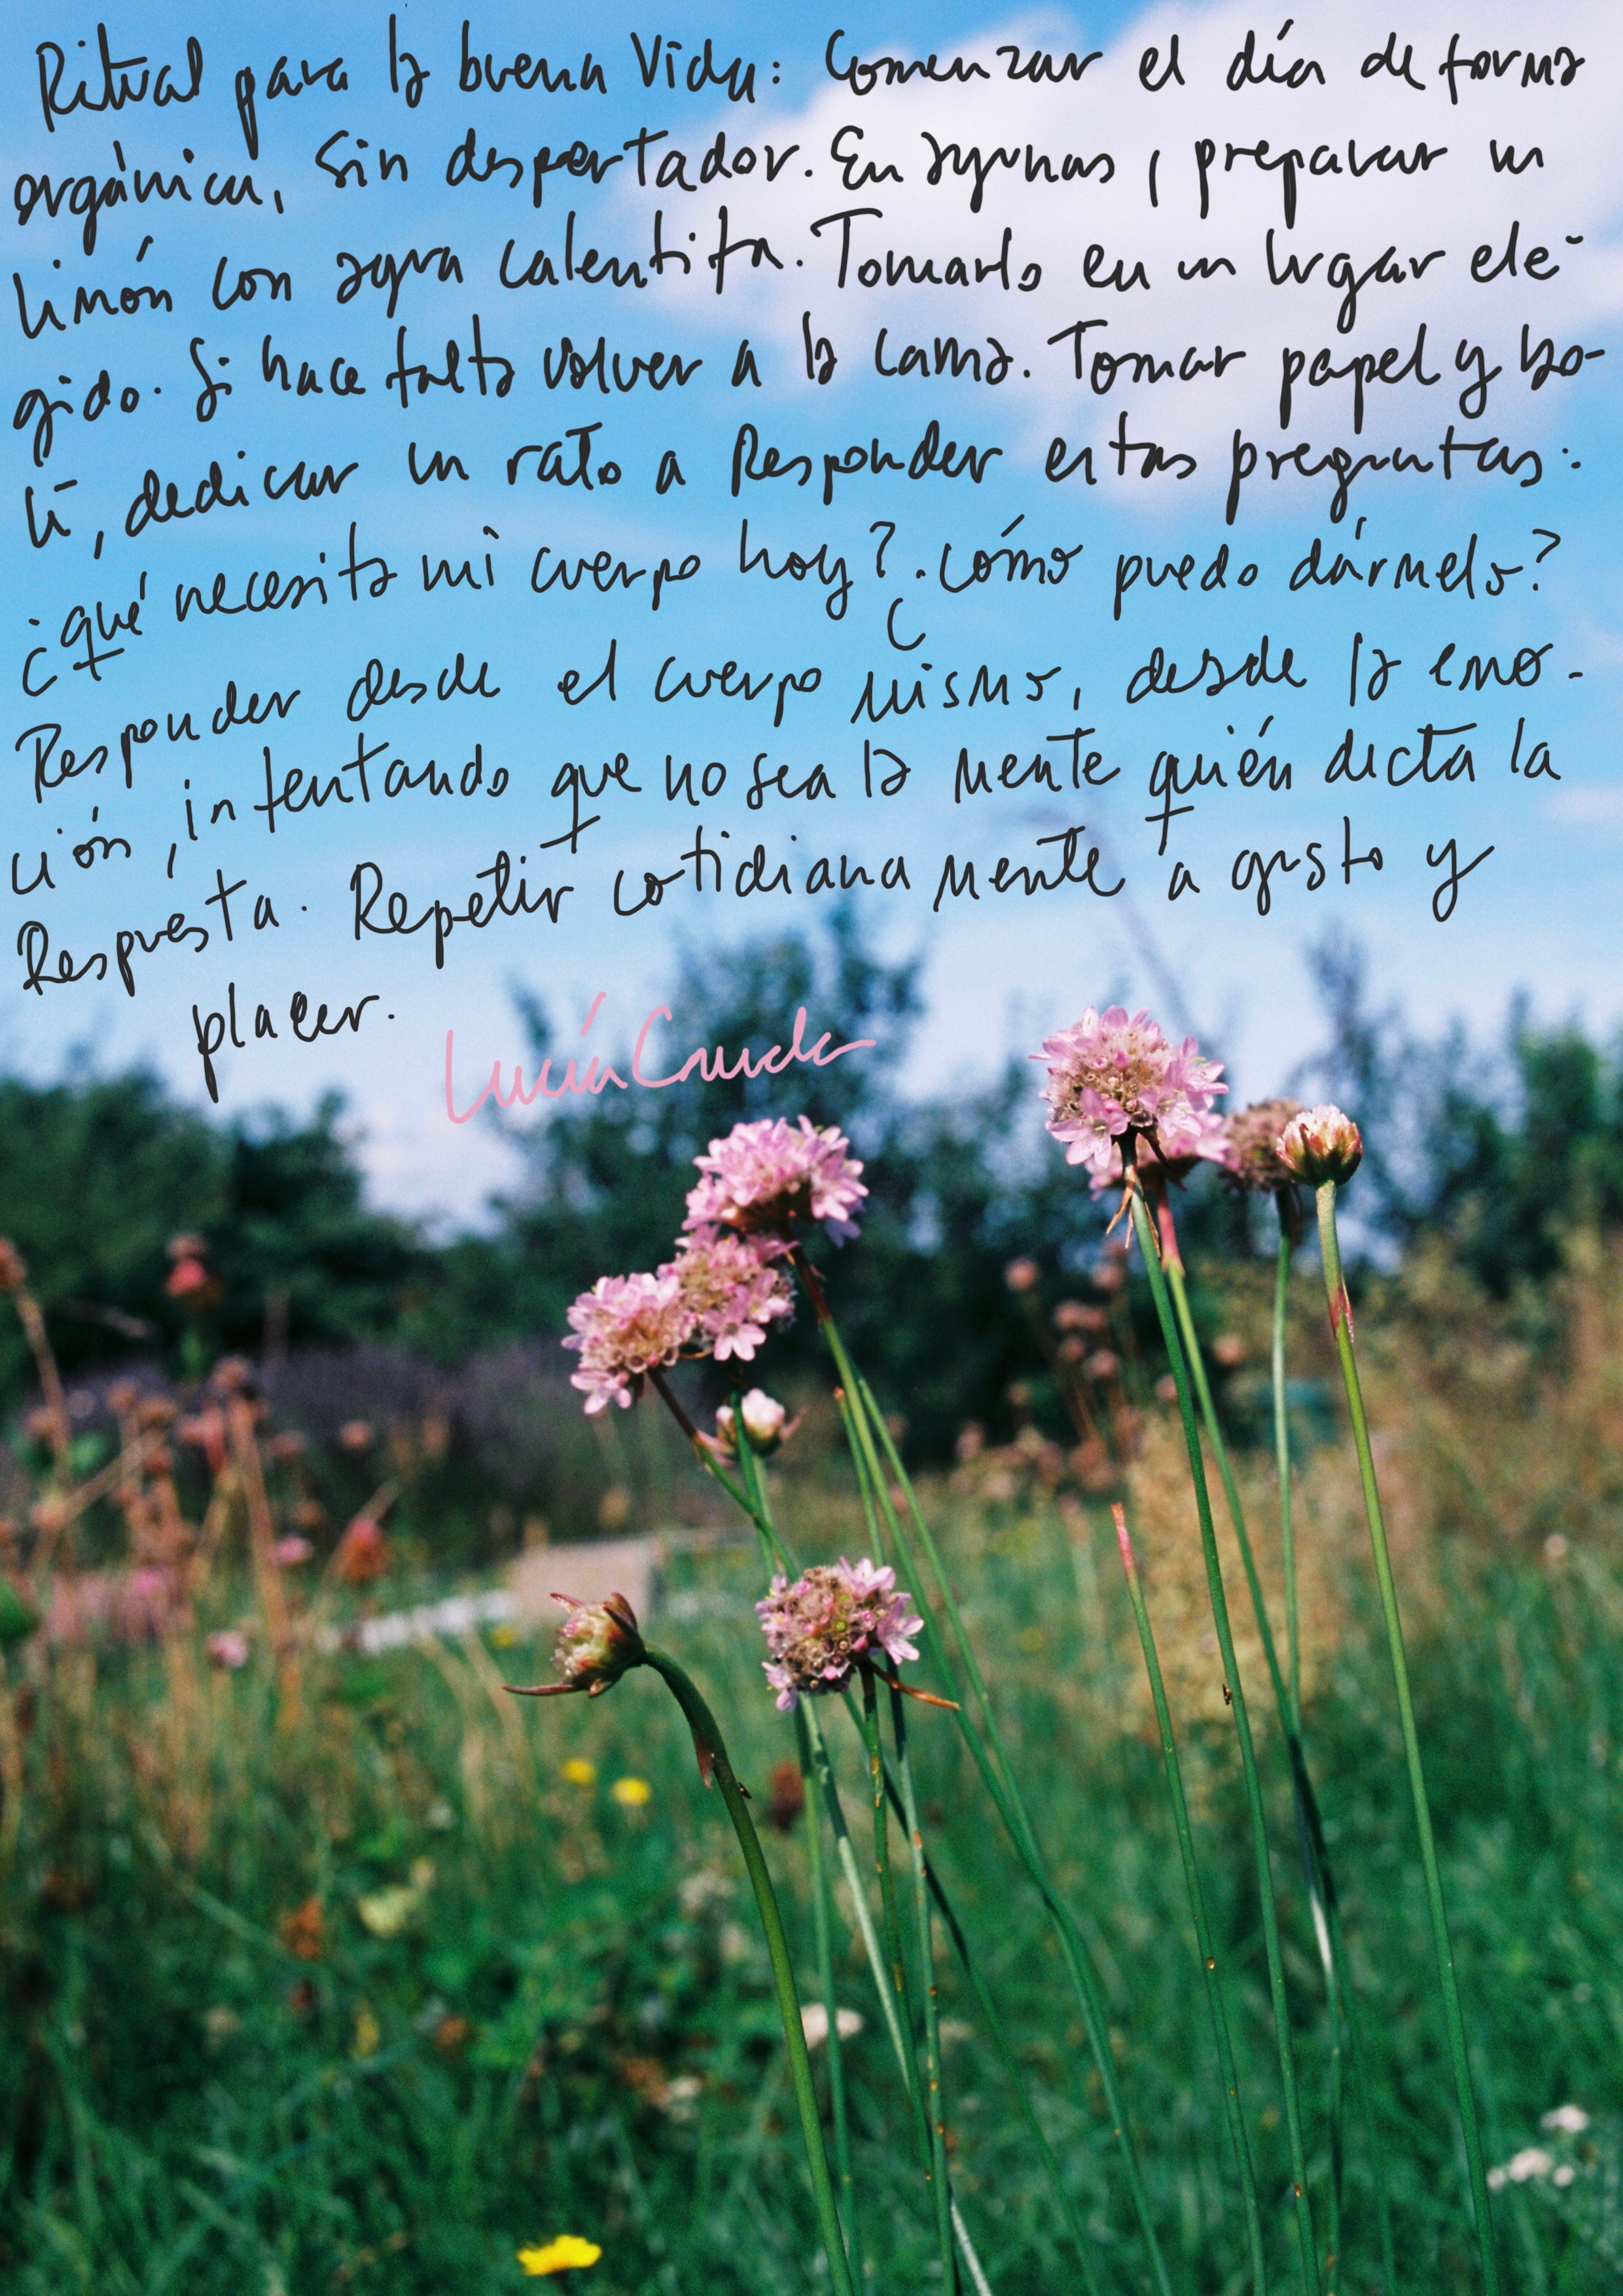 Ritual para la buena Vida: Comenzar el día de forma
orgánica, sin despertador. En ayunas, preparar un
limón con agua calentita. Tomarlo en un lugar ele-
gido. Si hace falta volver a la cama. Tomar papel y bo-
li, dedicar un rato a Responder estas preguntas:
¿qué necesita mi cuerpo hoy? ¿cómo puedo dármelo?
Responder desde el cuerpo mismo, desde la emo-
ción, intentando que no sea la mente quién dicta la
Respuesta. Repetir cotidianamente a gusto y
placer.
Lucía